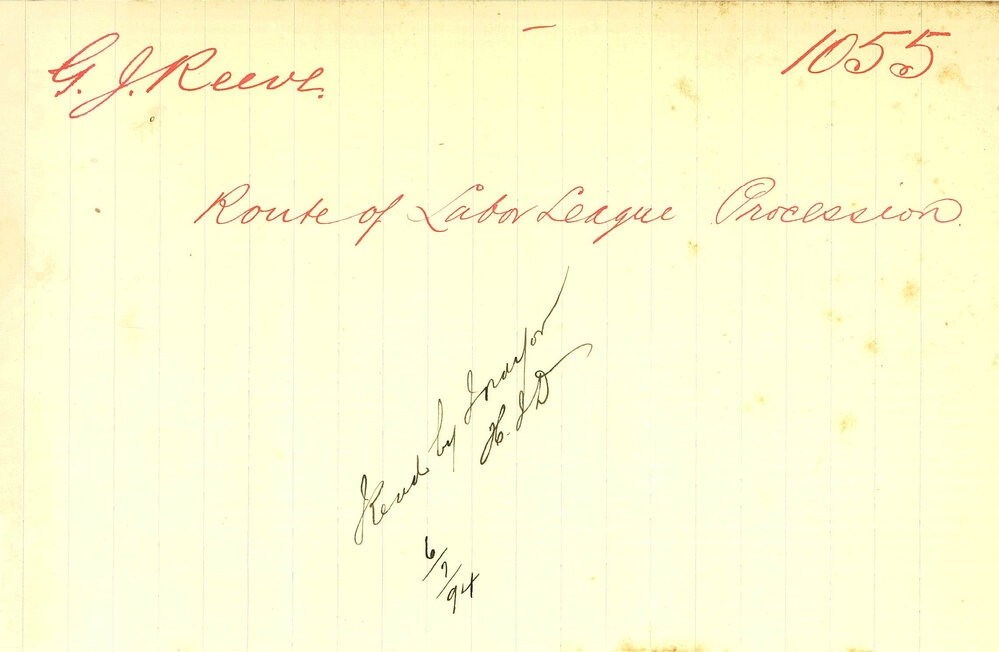 G. J. Reeve.
1055
Route of Labor League Procession
Read by Mayor
H. J. D
6/7/94